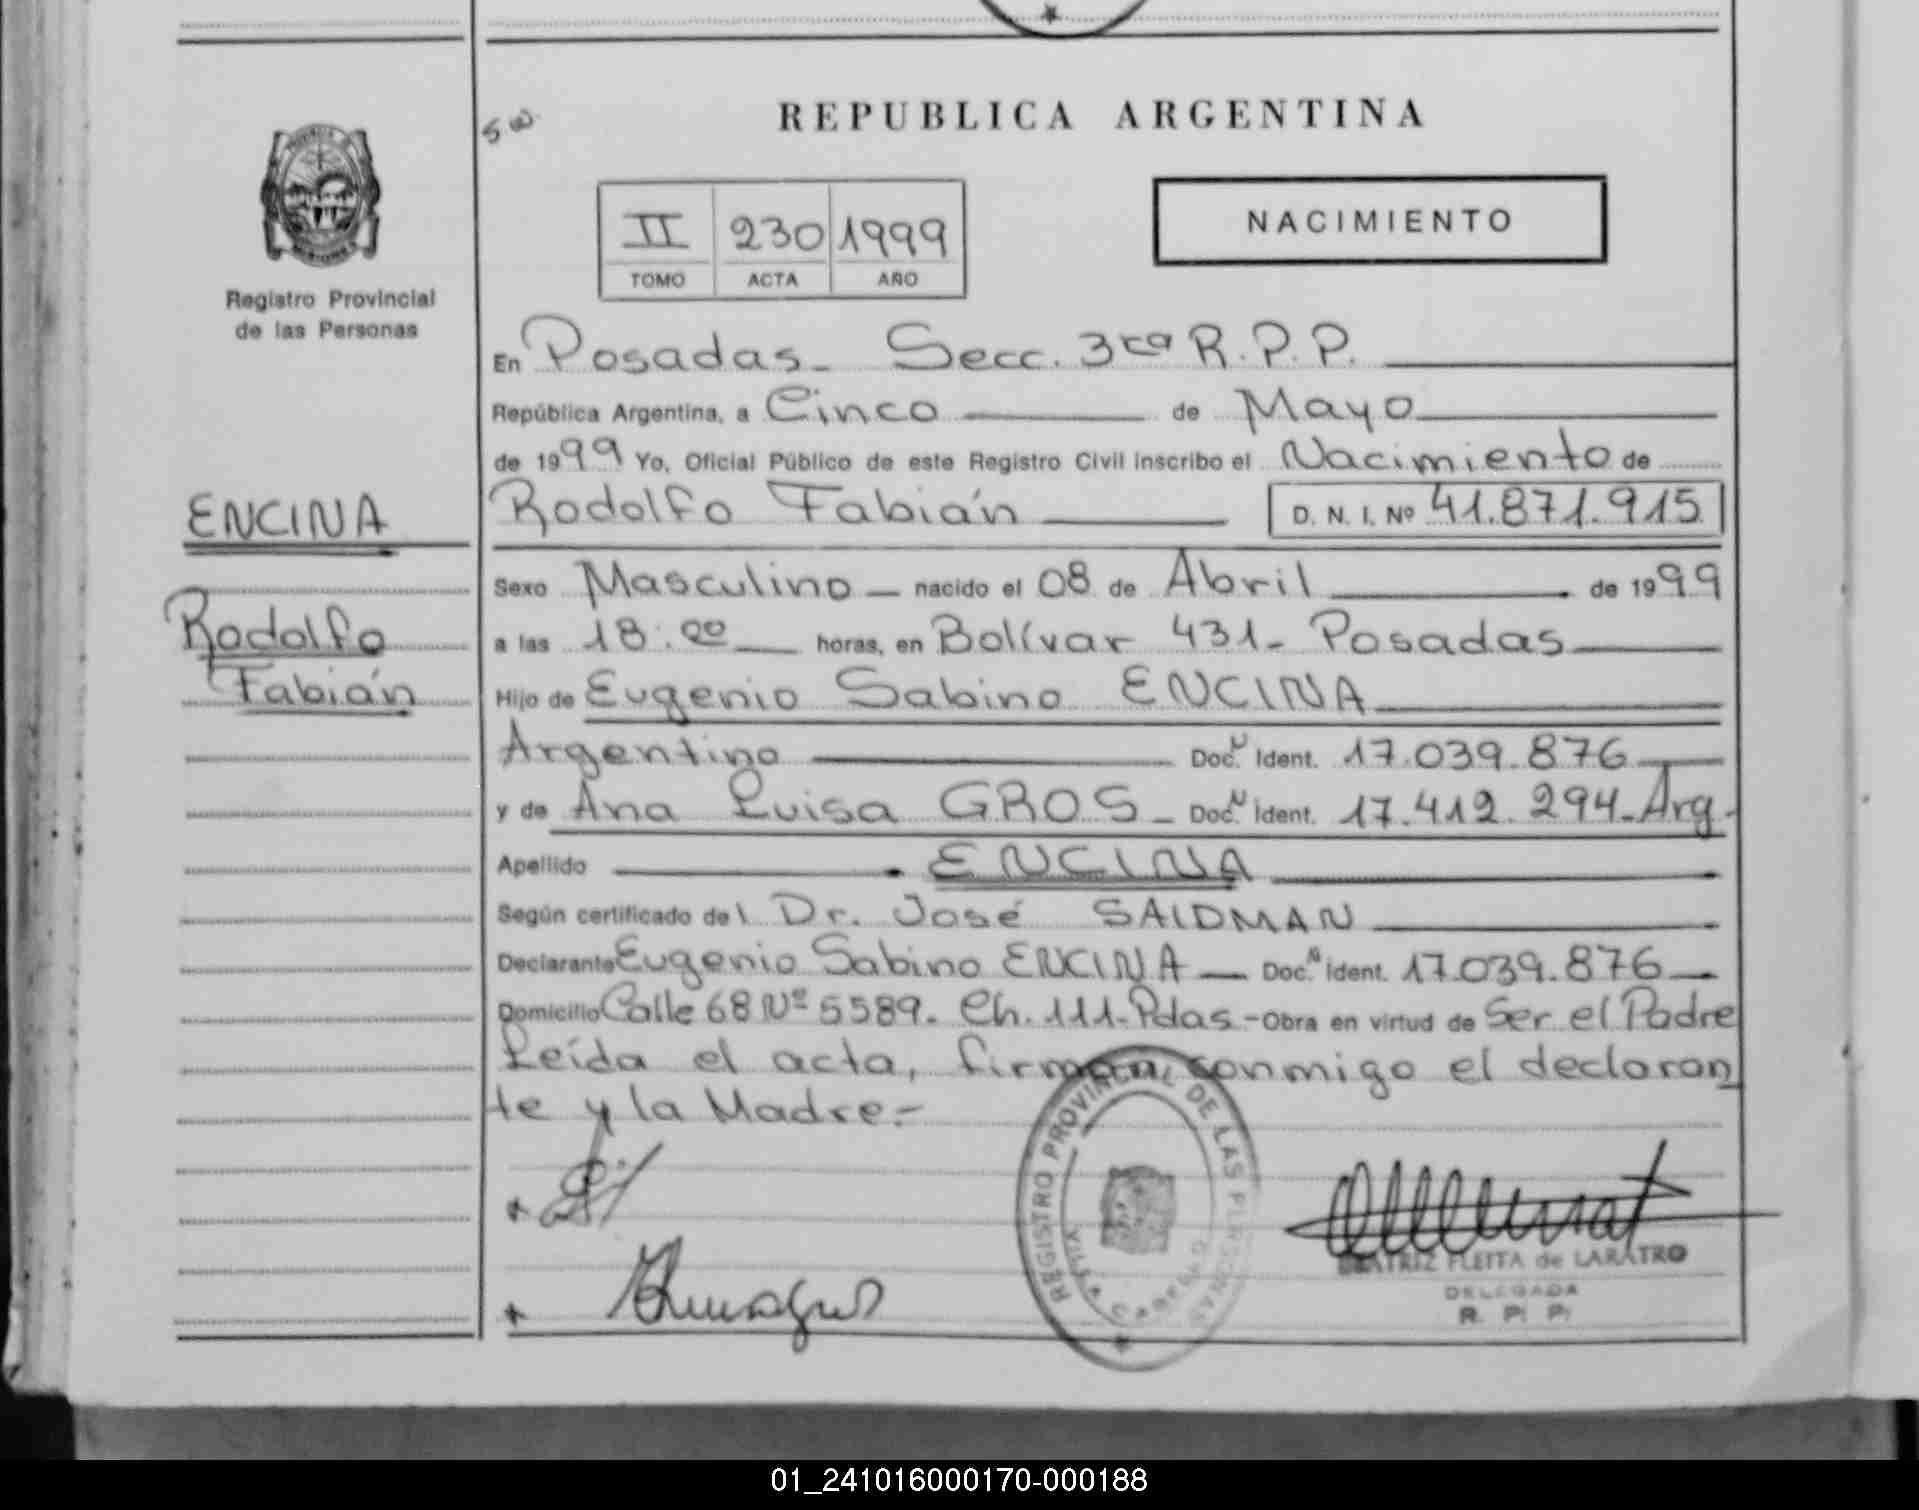 REPUBLICA ARGENTINA
NACIMIENTO
II 230 1999
TOMO ACTA AÑO
Registro Provincial
de las Personas
En Posadas - Secc. 3ra R.P.P.
República Argentina, a Cinco de Mayo
de 1999 Yo, Oficial Público de este Registro Civil inscribo el Nacimiento de
ENCINA
Rodolfo Fabián D. N. I. Nº 41.871.915
Sexo Masculino - nacido el 08 de Abril de 1999
Rodolfo
a las 18:00 horas, en Bolívar 431 - Posadas
Fabián
Hijo de Eugenio Sabino ENCINA
Argentino Doc. Ident. 17.039.876
y de Ana Luisa GROS - Doc. Ident. 17.412.294 - Arg.
Apellido ENCINA
Según certificado del Dr. José SAIDMAN
Declarante Eugenio Sabino ENCINA - Doc. Ident. 17.039.876
Domicilio Calle 68 Nº 5589 - Ch. 111 - Pdas - Obra en virtud de Ser el Padre
Leída el acta, firman conmigo el declaran
te y la Madre.-
REGISTRO PROVINCIAL DE LAS PERSONAS
VILLA CABELLO
BEATRIZ FLEITA de LARATRO
DELEGADA
R. P. P.
01_241016000170-000188